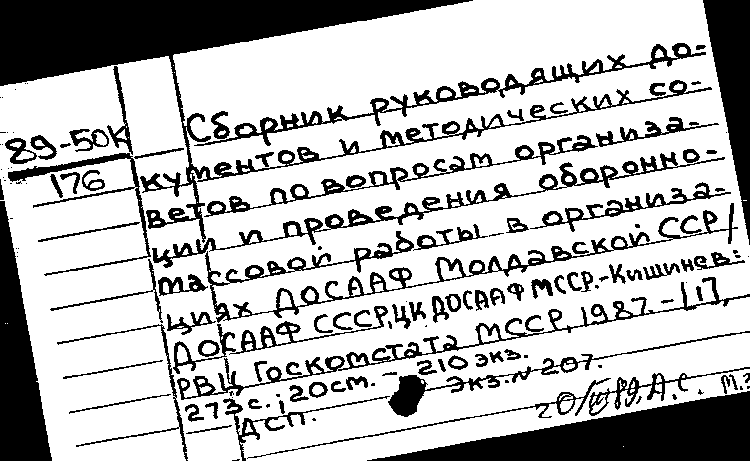 89-50К
176
Сборник руководящих до-
кументов и методических со-
ветов по вопросам организа-
ции и проведения оборонно-
массовой работы в организа-
циях ДОСААФ Молдавской ССР /
ДОСААФ СССР, ЦК ДОСААФ МССР.-Кишинев:
РВЦ Госкомстата МССР, 1987. - [1],
273 с.; 20 см. - 210 экз.
Экз. № 207.
ДСП.
20/III 89. А.С. М.З